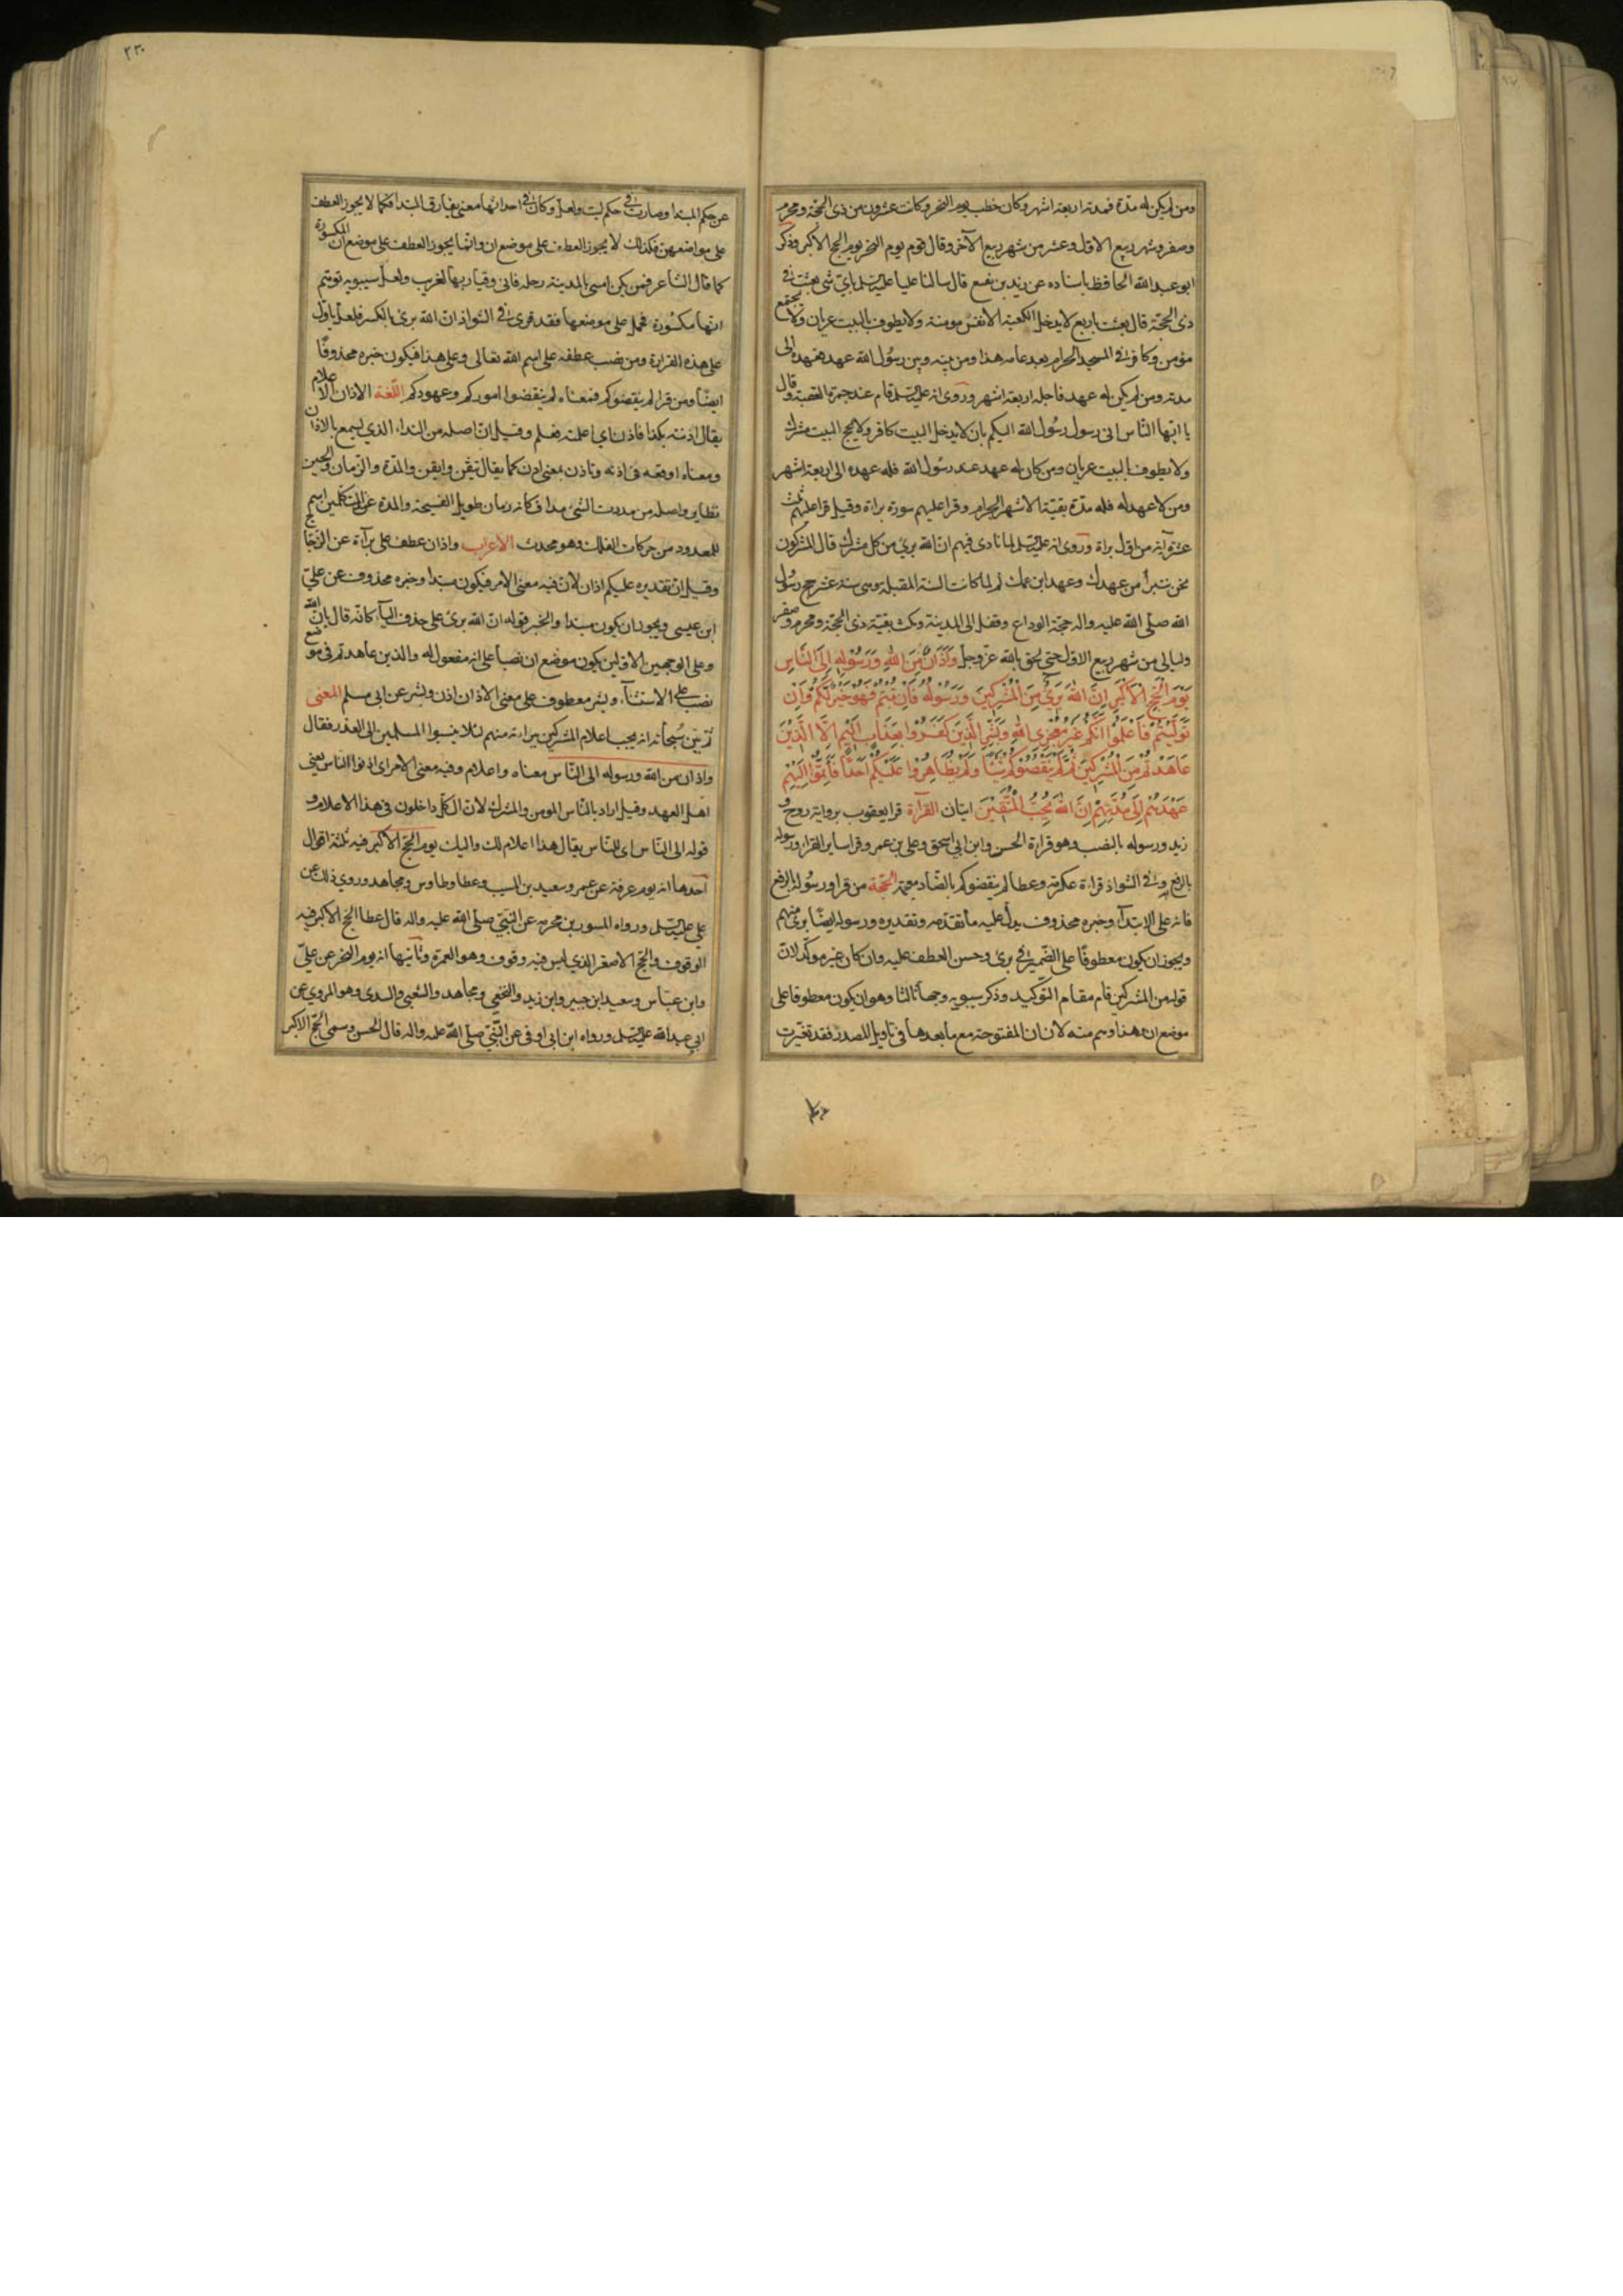 ومن لم يكن له مدة فمدته اربعة اشهر وكان خطب يوم النحر وكانت عشرون من ذى الحجة ومحرم
وصفر وشهر ربيع الاول وعشر من شهر ربيع الآخر وقال قوم يوم النحر يوم الحج الاكبر وذكر
ابو عبد الله الحافظ باسناده عن زيد بن نفيع قال سالنا عليا عليه السلم باى شى بعثت فى
ذى الحجة قال بعثت باربع لا يدخل الكعبة الا نفس مومنة ولا يطوف بالبيت عريان ولا يجتمع
مؤمن وكافر فى المسجد الحرام بعد عامه هذا ومن بينه وبين رسول الله عهد فعهده الى
مدته ومن لم يكن له عهد فاجله اربعة اشهر وروى انه عليه السلم قام عند جمرة العقبة وقال
يا ايها الناس انى رسول رسول الله اليكم بان لا يدخل البيت كافر ولا يحج البيت مشرك
ولا يطوف بالبيت عريان ومن كان له عهد عند رسول الله فله عهده الى اربعة اشهر
ومن لا عهد له فله مدة بقية الاشهر الحرام وقرا عليهم سورة براة وقيل قرا عليهم ثلث
عشرة آية من اول براة وروى انه عليه السلم لما نادى فيهم ان الله برئ من كل مشرك قال المشركون
نحن نتبرأ من عهدك وعهد ابن عمك ثم لما كانت السنة المقبلة وهى سنة عشر حج رسول
الله صلى الله عليه واله حجة الوداع وقفل الى المدينة ومكث بقية ذى الحجة ومحرم وصفر
وليالى من شهر ربيع الاول حتى لحق بالله عز وجل وَاَذَانٌ مِنَ اللهِ وَرَسُوْلِهِ اِلَى النَّاسِ
يَوْمَ الْحَجِّ الْاَكْبَرِ اِنَّ اللهَ بَرِئٌ مِنَ الْمُشْرِكِيْنَ وَرَسُوْلُهُ فَاِنْ تُبْتُمْ فَهُوَ خَيْرٌ لَكُمْ وَاِنْ
تَوَلَّيْتُمْ فَاعْلَمُوْا اَنَّكُمْ غَيْرُ مُعْجِزِى اللهِ وَبَشِّرِ الَّذِيْنَ كَفَرُوْا بِعَذَابٍ اَلِيْمٍ اِلَّا الَّذِيْنَ
عَاهَدْتُمْ مِنَ الْمُشْرِكِيْنَ ثُمَّ لَمْ يَنْقُصُوْكُمْ شَيْئًا وَلَمْ يُظَاهِرُوْا عَلَيْكُمْ اَحَدًا فَاَتِمُّوْا اِلَيْهِمْ
عَهْدَهُمْ اِلَى مُدَّتِهِمْ اِنَّ اللهَ يُحِبُّ الْمُتَّقِيْنَ ايتان القرآة قرا يعقوب برواية روح و
زيد ورسوله بالنصب وهو قراءة الحسن وابن ابى اسحق وعلى بن عمر وقرا ساير القرا ورسوله
بالرفع وفى الشواذ قراءة عكرمة وعطا لم ينقضوكم بالضاد معجمة الحجة من قرا ورسوله بالرفع
فانه على الابتدآء وخبره محذوف يدل عليه ما تقدمه وتقديره ورسوله ايضًا برئ منهم
ويجوز ان يكون معطوفًا على الضمير فى برئ وحسن العطف عليه وان كان غير موكّد لان
قوله من المشركين قام مقام التوكيد وذكر سيبويه وجهًا ثالثا وهو ان يكون معطوفا على
موضع ان هذا وهم منه لان ان المفتوحة مع ما بعدها فى تاويل المصدر فقد تغيرت
۲۳۰
عن حكم المبتدا وصارت فى حكم ليت ولعل وكان فى احداثها معنى يفارق المبتدا فكما لا يجوز العطف
على مواضعهن فكذلك لا يجوز العطف على موضع ان وانما يجوز العطف على موضع ان المكسورة
كما قال الشاعر فمن يكن امسى بالمدينة رحله فانى وقيار بها لغريب ولعل سيبويه توهم
انها مكسورة فحمل على موضعها فقد قرى فى الشواذ ان الله برئ بالكسر فلعله تاول
على هذه القراءة ومن نصب عطفه على اسم الله تعالى وعلى هذا فيكون خبره محذوفًا
ايضًا ومن قرا لم ينقضوكم فمعناه لم ينقضوا اموركم وعهودكم اللغة الاذان الاعلام
يقال اذنته بكذا فاذن اى اعلمته فعلم وقيل ان اصله من الندا، الذى يسمع بالاذان
ومعناه اوقعه فى اذنه وتاذن بمعنى اذن كما يقال تيقن وايقن والمدة والزمان والحين
نظاير واصله من مددت الشئ مدا فكانه زمان طويل الفسيحة والمدة عند المتكلمين اسم
للمعدود من حركات الفلك وهو محدث الاعراب واذان عطف على برآة عن الزجاج
وقيل ان تقديره عليكم اذان لان فيه معنى الامر فيكون مبتدا وخبره محذوف عن على
ابن عيسى ويجوز ان يكون مبتدا والخبر قوله ان الله برئ على حذف البآء كانه قال بان الله
وعلى الوجهين الاولين يكون موضع ان نصبا على انه مفعول له والذين عاهدتم فى موضع
نصب على الاستثنآء وبشر معطوف على معنى الاذان اذن وبشر عن ابى مسلم المعنى
ثم بين سبحانه انه يجب اعلام المشركين ببراءة منهم لئلا ينسبوا المسلمين الى الغدر فقال
واذان من الله ورسوله الى الناس معناه واعلام وفيه معنى الامر اى اذنوا الناس يعنى
اهل العهد وقيل اراد بالناس المومن والمشرك لان الكل داخلون فى هذا الاعلام و
قوله الى الناس اى للناس يقال هذا اعلام لك واليك يوم الحج الاكبر فيه ثلثة اقوال
احدها انه يوم عرفة عن عمر وسعيد بن المسيب وعطا وطاوس ومجاهد وروى ذلك عن
على عليه السلم ورواه المسور بن مخرمة عن النبى صلى الله عليه واله قال عطا الحج الاكبر فيه
الوقوف والحج الاصغر الذى ليس فيه وقوف وهو العمرة وثانيها انه يوم النحر عن على
وابن عباس وسعيد ابن جبير وابن زيد والنخعى ومجاهد والشعبى والسدى وهو المروى عن
ابى عبد الله عليه السلم ورواه ابن ابى اوفى عن النبى صلى الله عليه واله قال الحسن وسمى الحج الاكبر